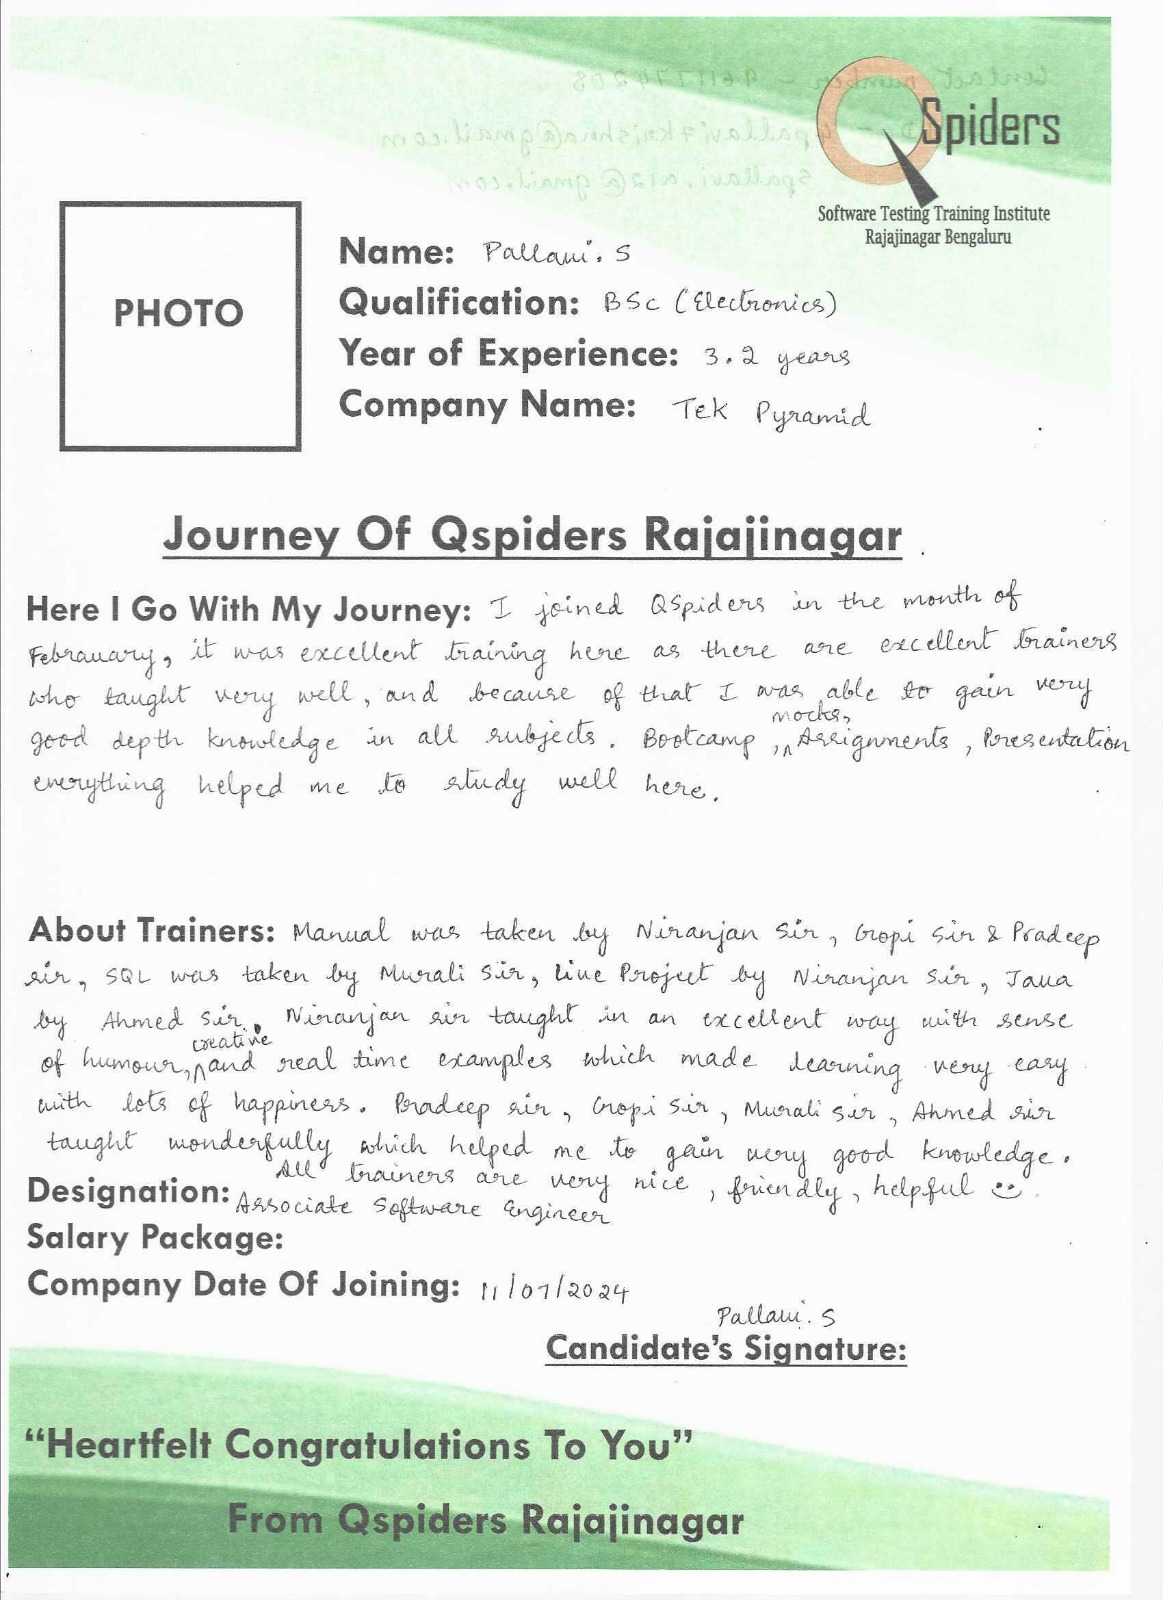 QSpiders
Software Testing Training Institute
Rajajinagar Bengaluru
PHOTO
Name: Pallavi. S
Qualification: BSc (Electronics)
Year of Experience: 3.2 years
Company Name: Tek Pyramid
Journey Of Qspiders Rajajinagar
Here I Go With My Journey: I joined QSpiders in the month of
Febrauary, it was excellent training here as there are excellent trainers
who taught very well, and because of that I was able to gain very
good depth knowledge in all subjects. Bootcamp, mocks, Assignments, Presentation
everything helped me to study well here.
About Trainers: Manual was taken by Niranjan Sir, Gopi Sir & Pradeep
sir, SQL was taken by Murali Sir, Live Project by Niranjan Sir, Java
by Ahmed Sir. Niranjan sir taught in an excellent way with sense
of humour, creative and real time examples which made learning very easy
with lots of happiness. Pradeep sir, Gopi Sir, Murali Sir, Ahmed sir
taught wonderfully which helped me to gain very good knowledge.
All trainers are very nice, friendly, helpful
Designation: Associate Software Engineer
Salary Package:
Company Date Of Joining: 11/07/2024
Pallavi. S
Candidate's Signature:
“Heartfelt Congratulations To You”
From Qspiders Rajajinagar